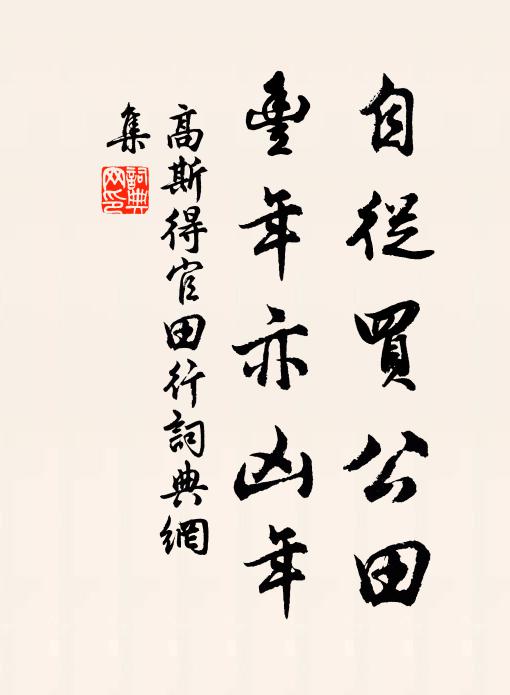 自從買公田
豐年亦凶年
高斯得官田行詞典網
集
詞典
网印